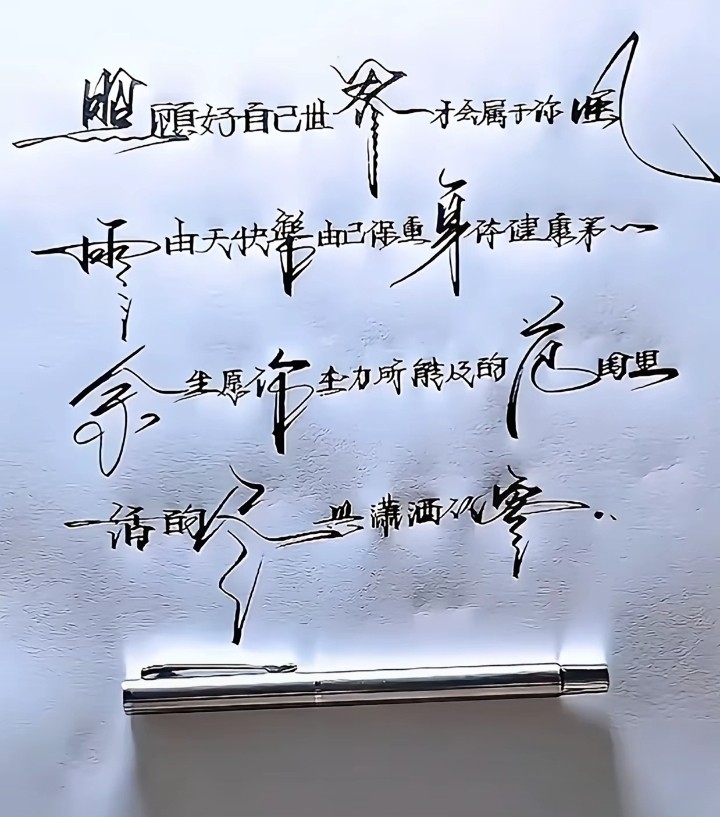 照顧好自己世界才会属于你風
雪由天快樂由己保重身体健康第一
余生愿你在力所能及的范围里
活的尽兴瀟洒从容..